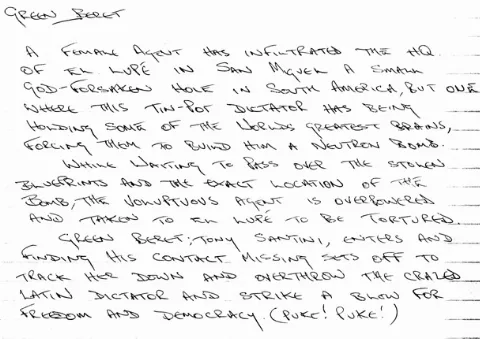 GREEN BERET
A FEMALE AGENT HAS INFILTRATED THE HQ
OF EL LUPÉ IN SAN MGUEL A SMALL
GOD-FORSAKEN HOLE IN SOUTH AMERICA, BUT ONE
WHERE THIS TIN-POT DICTATOR HAS BEING
HOLDING SOME OF THE WORLDS GREATEST BRAINS,
FORCING THEM TO BUILD HIM A NEUTRON BOMB.
WHILE WAITING TO PASS OVER THE STOLEN
BLUEPRINTS AND THE EXACT LOCATION OF THE
BOMB, THE VOLUPTUOUS AGENT IS OVERPOWERED
AND TAKEN TO EL LUPÉ TO BE TORTURED.
GREEN BERET; TONY SANTINI, ENTERS AND
FINDING HIS CONTACT MISSING SETS OFF TO
TRACK HER DOWN AND OVERTHROW THE CRAZED
LATIN DICTATOR AND STRIKE A BLOW FOR
FREEDOM AND DEMOCRACY. (PUKE! PUKE!)